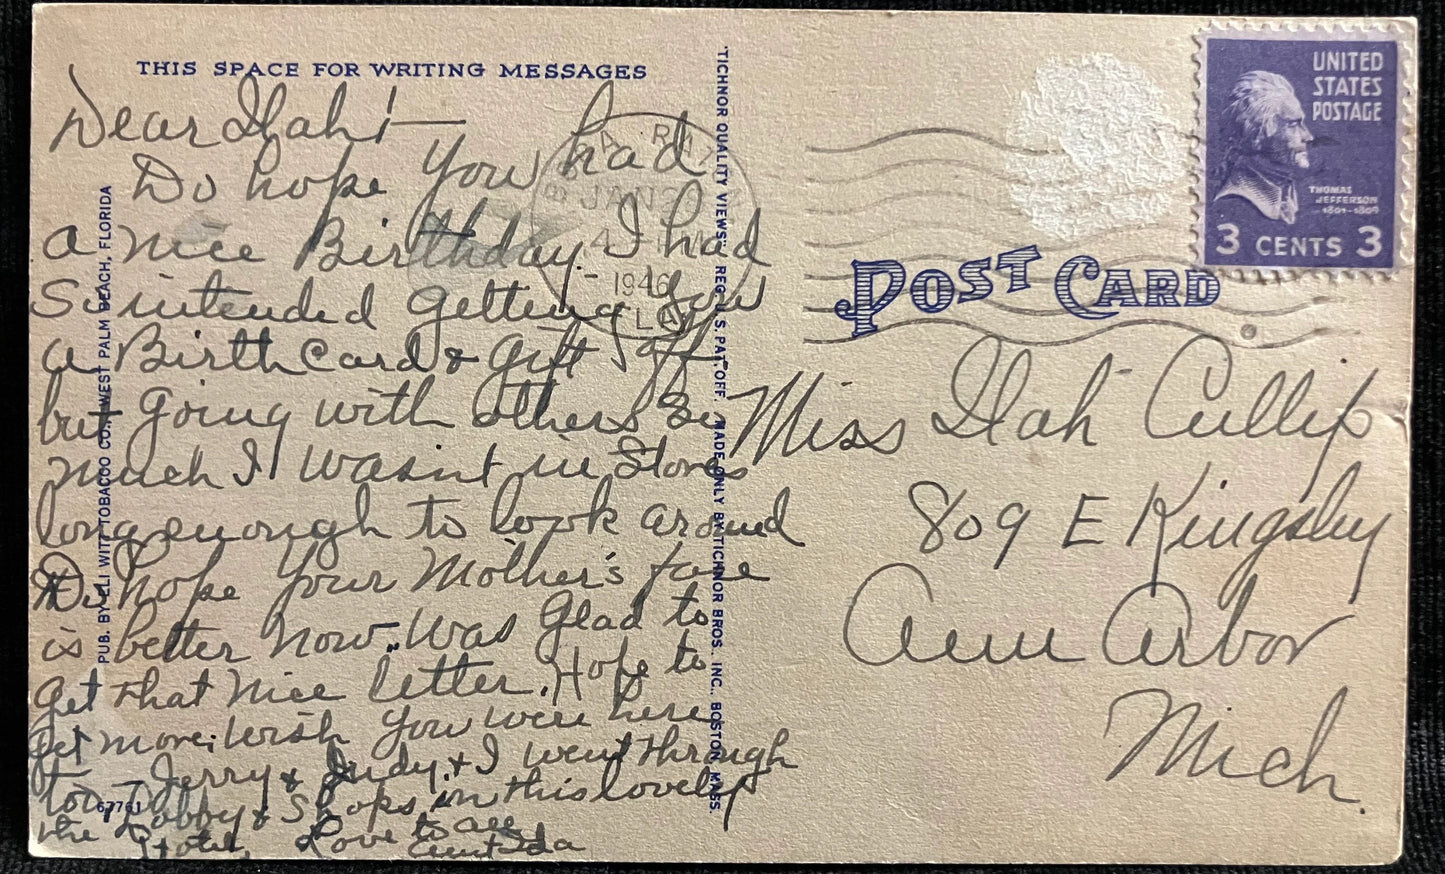 THIS SPACE FOR WRITING MESSAGES
Dear Ilah:—
Do hope you had
a nice Birthday. I had
So intended getting you
a Birth Card & gift off
but going with others so
much I wasn't in Stores
long enough to look around
Do hope your Mother's face
is better now. Was Glad to
get that nice letter. Hope to
get more. Wish you were here
to — Jerry & Judy & I went through
the Lobby & Shops in this lovely
Hotel. Love to all
Aunt Ida
67761
PUB. BY ELI WITT TOBACCO CO., WEST PALM BEACH, FLORIDA
"TICHNOR QUALITY VIEWS" REG. U.S. PAT. OFF. MADE ONLY BY TICHNOR BROS. INC., BOSTON, MASS.
RATON
JAN
1946
FLA
UNITED
STATES
POSTAGE
THOMAS
JEFFERSON
1801-1809
3 CENTS 3
POST CARD
Miss Ilah Cullip
809 E Kingsley
Ann Arbor
Mich.